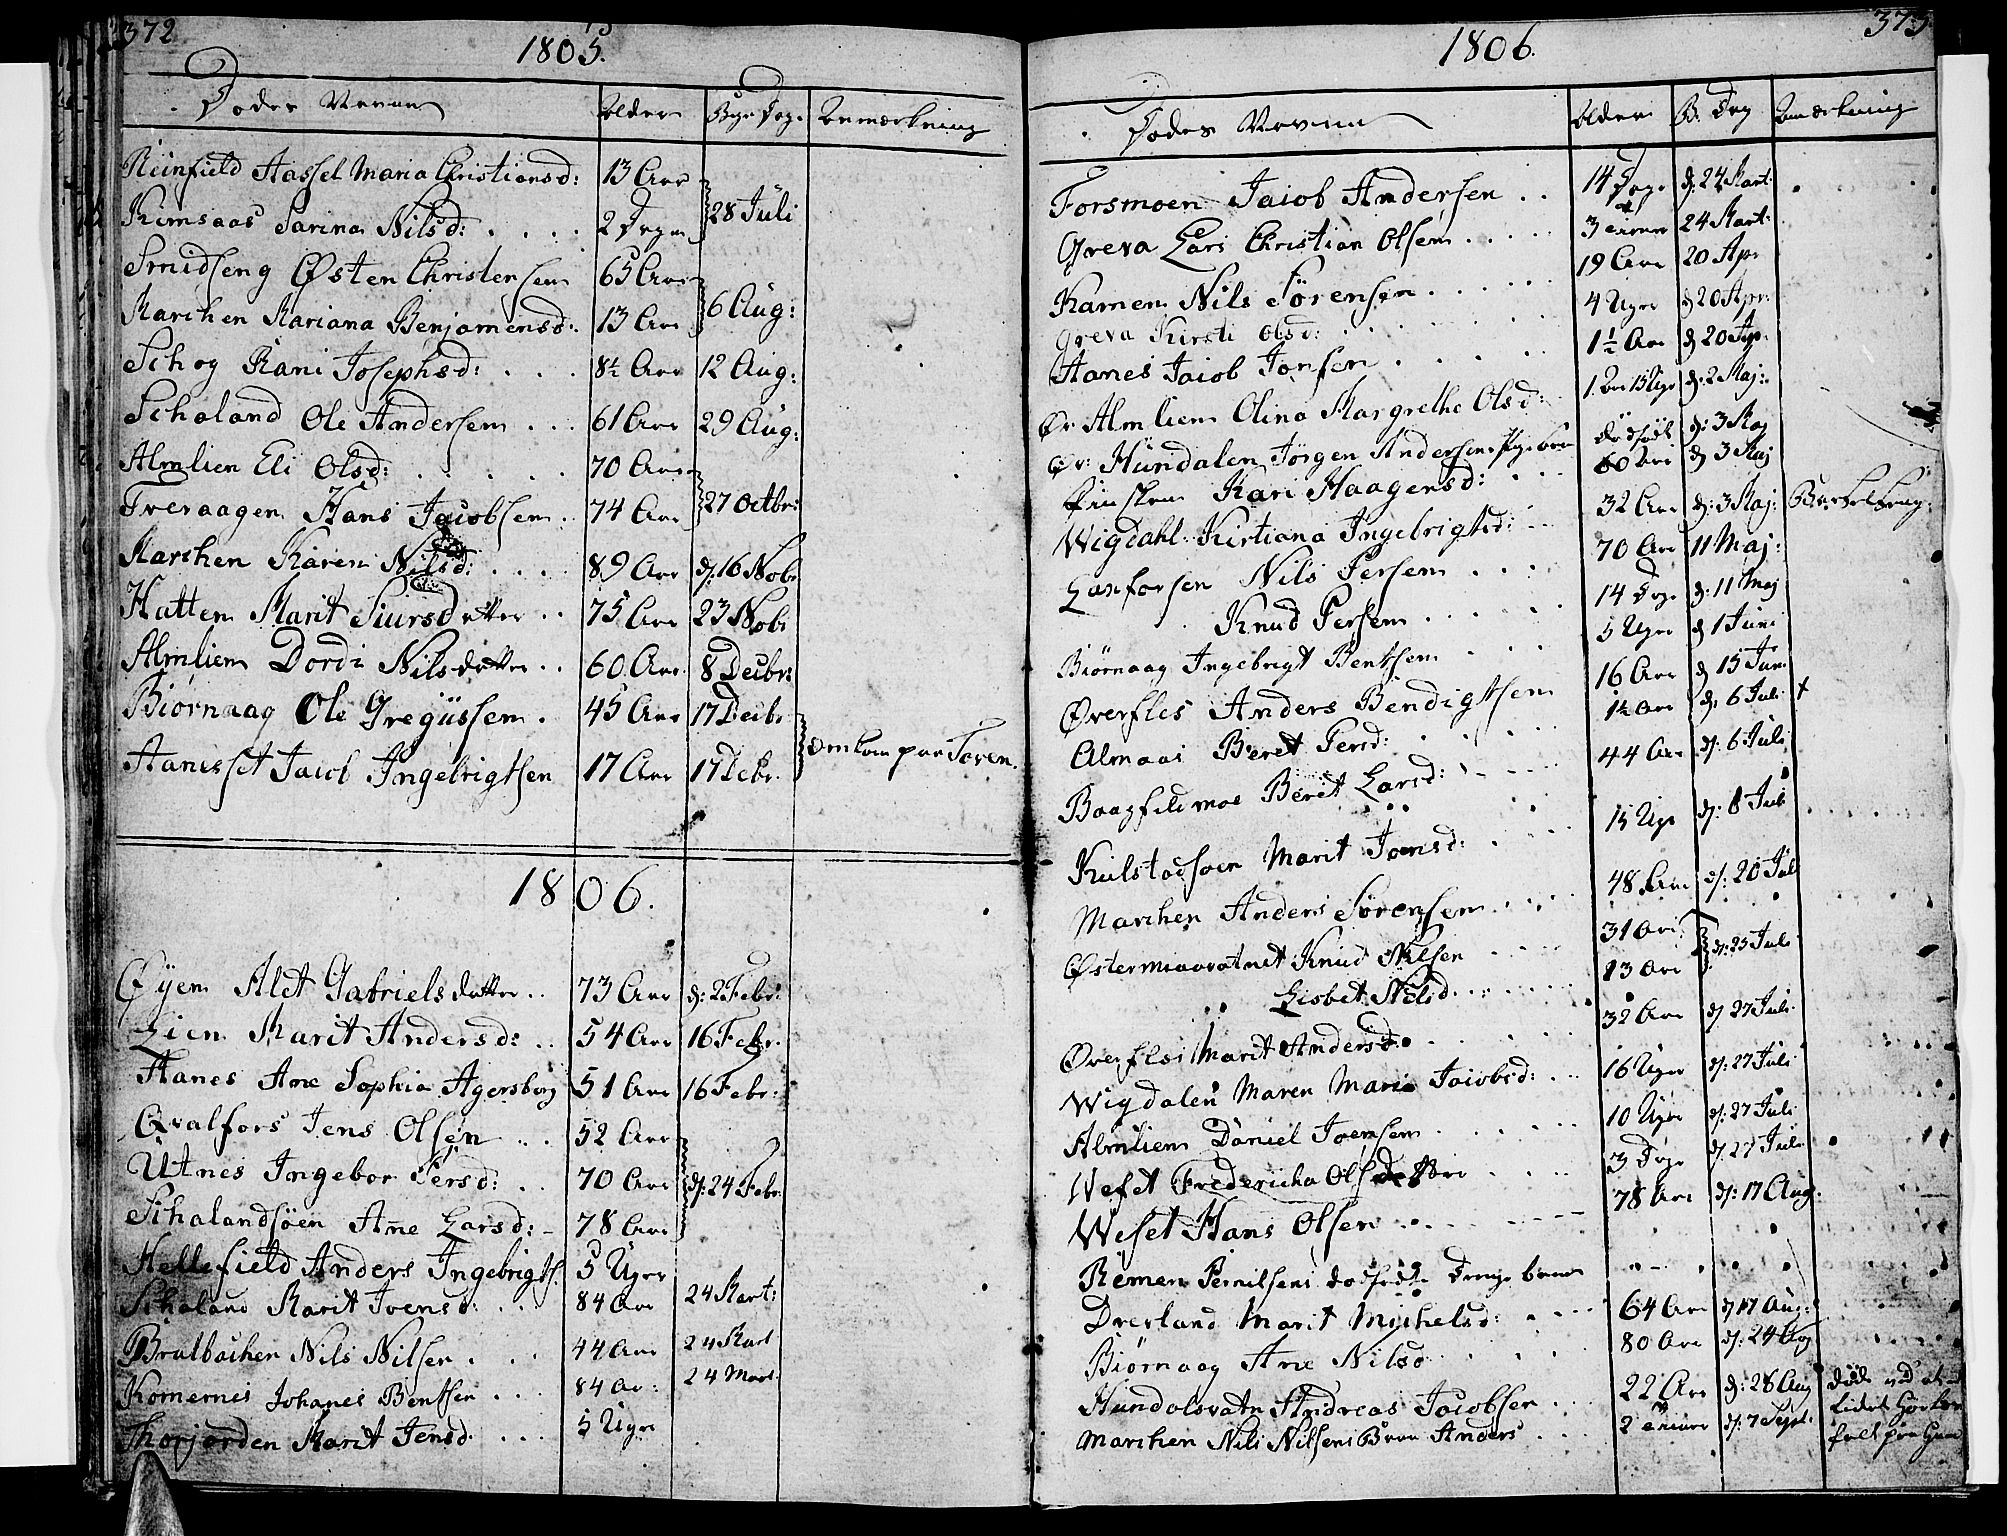 372
1805.
Dødes Navne Alder Begr. Dag. Anmærkning
Reinfield Hassel Maria Christiansd: 13 Aar
Remsaas Sarina Nilsd: 2 Dage 28 Juli
Smidseng Østen Christensen 65 Aar
Marchen Mariana Benjamensd: 13 Aar 6 Aug:
Schog Rani Josephsd: 8½ Aar 12 Aug:
Schaland Ole Andersen 61 Aar 29 Aug:
Almlien Eli Olsd: 70 Aar
Treraagen Hans Jacobsen 74 Aar 27 Octbr:
Marchen Karen Nilsd: 89 Aar d: 16 Nobr
Hatten Marit Siursdatter 75 Aar 23 Nobr
Almlien Dordi Nilsdatter 60 Aar 8 Decbr:
Biørnaag Ole Gregussen 45 Aar 17 Decbr
Hanesset Jacob Ingebrigtsen 17 Aar 17 Decbr. Omkom paa Søen.
1806.
Øyen Alet Gabrielsdatter 73 Aar d: 2 Febr:
Lien Marit Andersd: 54 Aar 16 Febr.
Hanes Ane Sophia Agersborg 51 Aar 16 Febr:
Qvalfors Jens Olsen 52 Aar
Utnes Ingebor Persd: 70 Aar d: 24 Febr.
Schalandsøen Ane Larsd: 78 Aar
Hellefield Anders Ingebrigts. 5 Uger
Schaland Marit Ivensd: 84 Aar 24 Mart:
Bratbachen Nils Nilsen 44 Aar 24 Mart
Kornernes Johanes Bentsen 84 Aar: 24 Mart.
Thorjorden Marit Jensd. 5 Uger
373
1806.
Dødes Navne Alder B. Dag Anmærkning
Forsmoen Jacob Andersen 14 Dage d: 24 Mart:
Greva Lars Christian Olsen 3 24 Mart:
Kamen Nils Sørensen 19 Aar 20 Apr
Greva Kirsti Olsd: 4 Uger d 20 Apr:
Hanes Jacob Jonsen 1½ Aar d 20 Apr.
Ør Almlien Olina Margrethe Olsd: 1 Aar 15 Uger d: 2 Maj:
Ør: Hundalen Jörgen Andersens dødfødt d: 3 Maj
Finskem Kari Haagensd: 60 Aar d 3 Maj
Wigdahl Kirtiana Ingebrigtsd: 32 Aar d: 3 Maj: Barselseng.
Laxforsen Nils Persen 70 Aar 11 Maj:
Knud Persen 14 Dage d: 11 Maj
Biørnaag Ingebrigt Bentsen 5 Uger d 1 Juni
Øverfles Anders Bendigtsen 16 Aar d 15 Juni
Almaas Beret Persd: 1½ Aar d: 6 Juli
Baagfieldmoe Berit Larsd: 44 Aar d: 6 Juli
Kulstadsøen Marit Joensd: 15 Uger d: 8 Juli
Marchen Anders Sørensen 48 Aar d: 20 Juli
Østermiavatnet Knud Nilsen 31 Aar
Lisbet Nilsd. 13 Aar d: 25 Juli
Øverfles Marit Andersd: 32 Aar d 27 Juli
Wigdalen Maren Maria Jacobsd: 16 Uger d: 27 Juli
Almlien Daniel Joensen 10 Uger d: 27 Juli
Wefset Fredericha Olsdatter 3 Dage d. 27 Juli
Wefset Hans Olsen 78 Aar d: 17 Aug.
Remen Per Nilsens dødfødt Drenge barn
Drevland Marit Michelsd: 64 Aar d 17 Aug:
Biørnaag Ane Nilsd 80 Aar d: 24 Aug
Hundalsvatn Andreas Jacobsen 22 Aar d: 28 Aug døde ved
Marchen Nils Nilsens Barn Anders 2 d: 7 Sept: